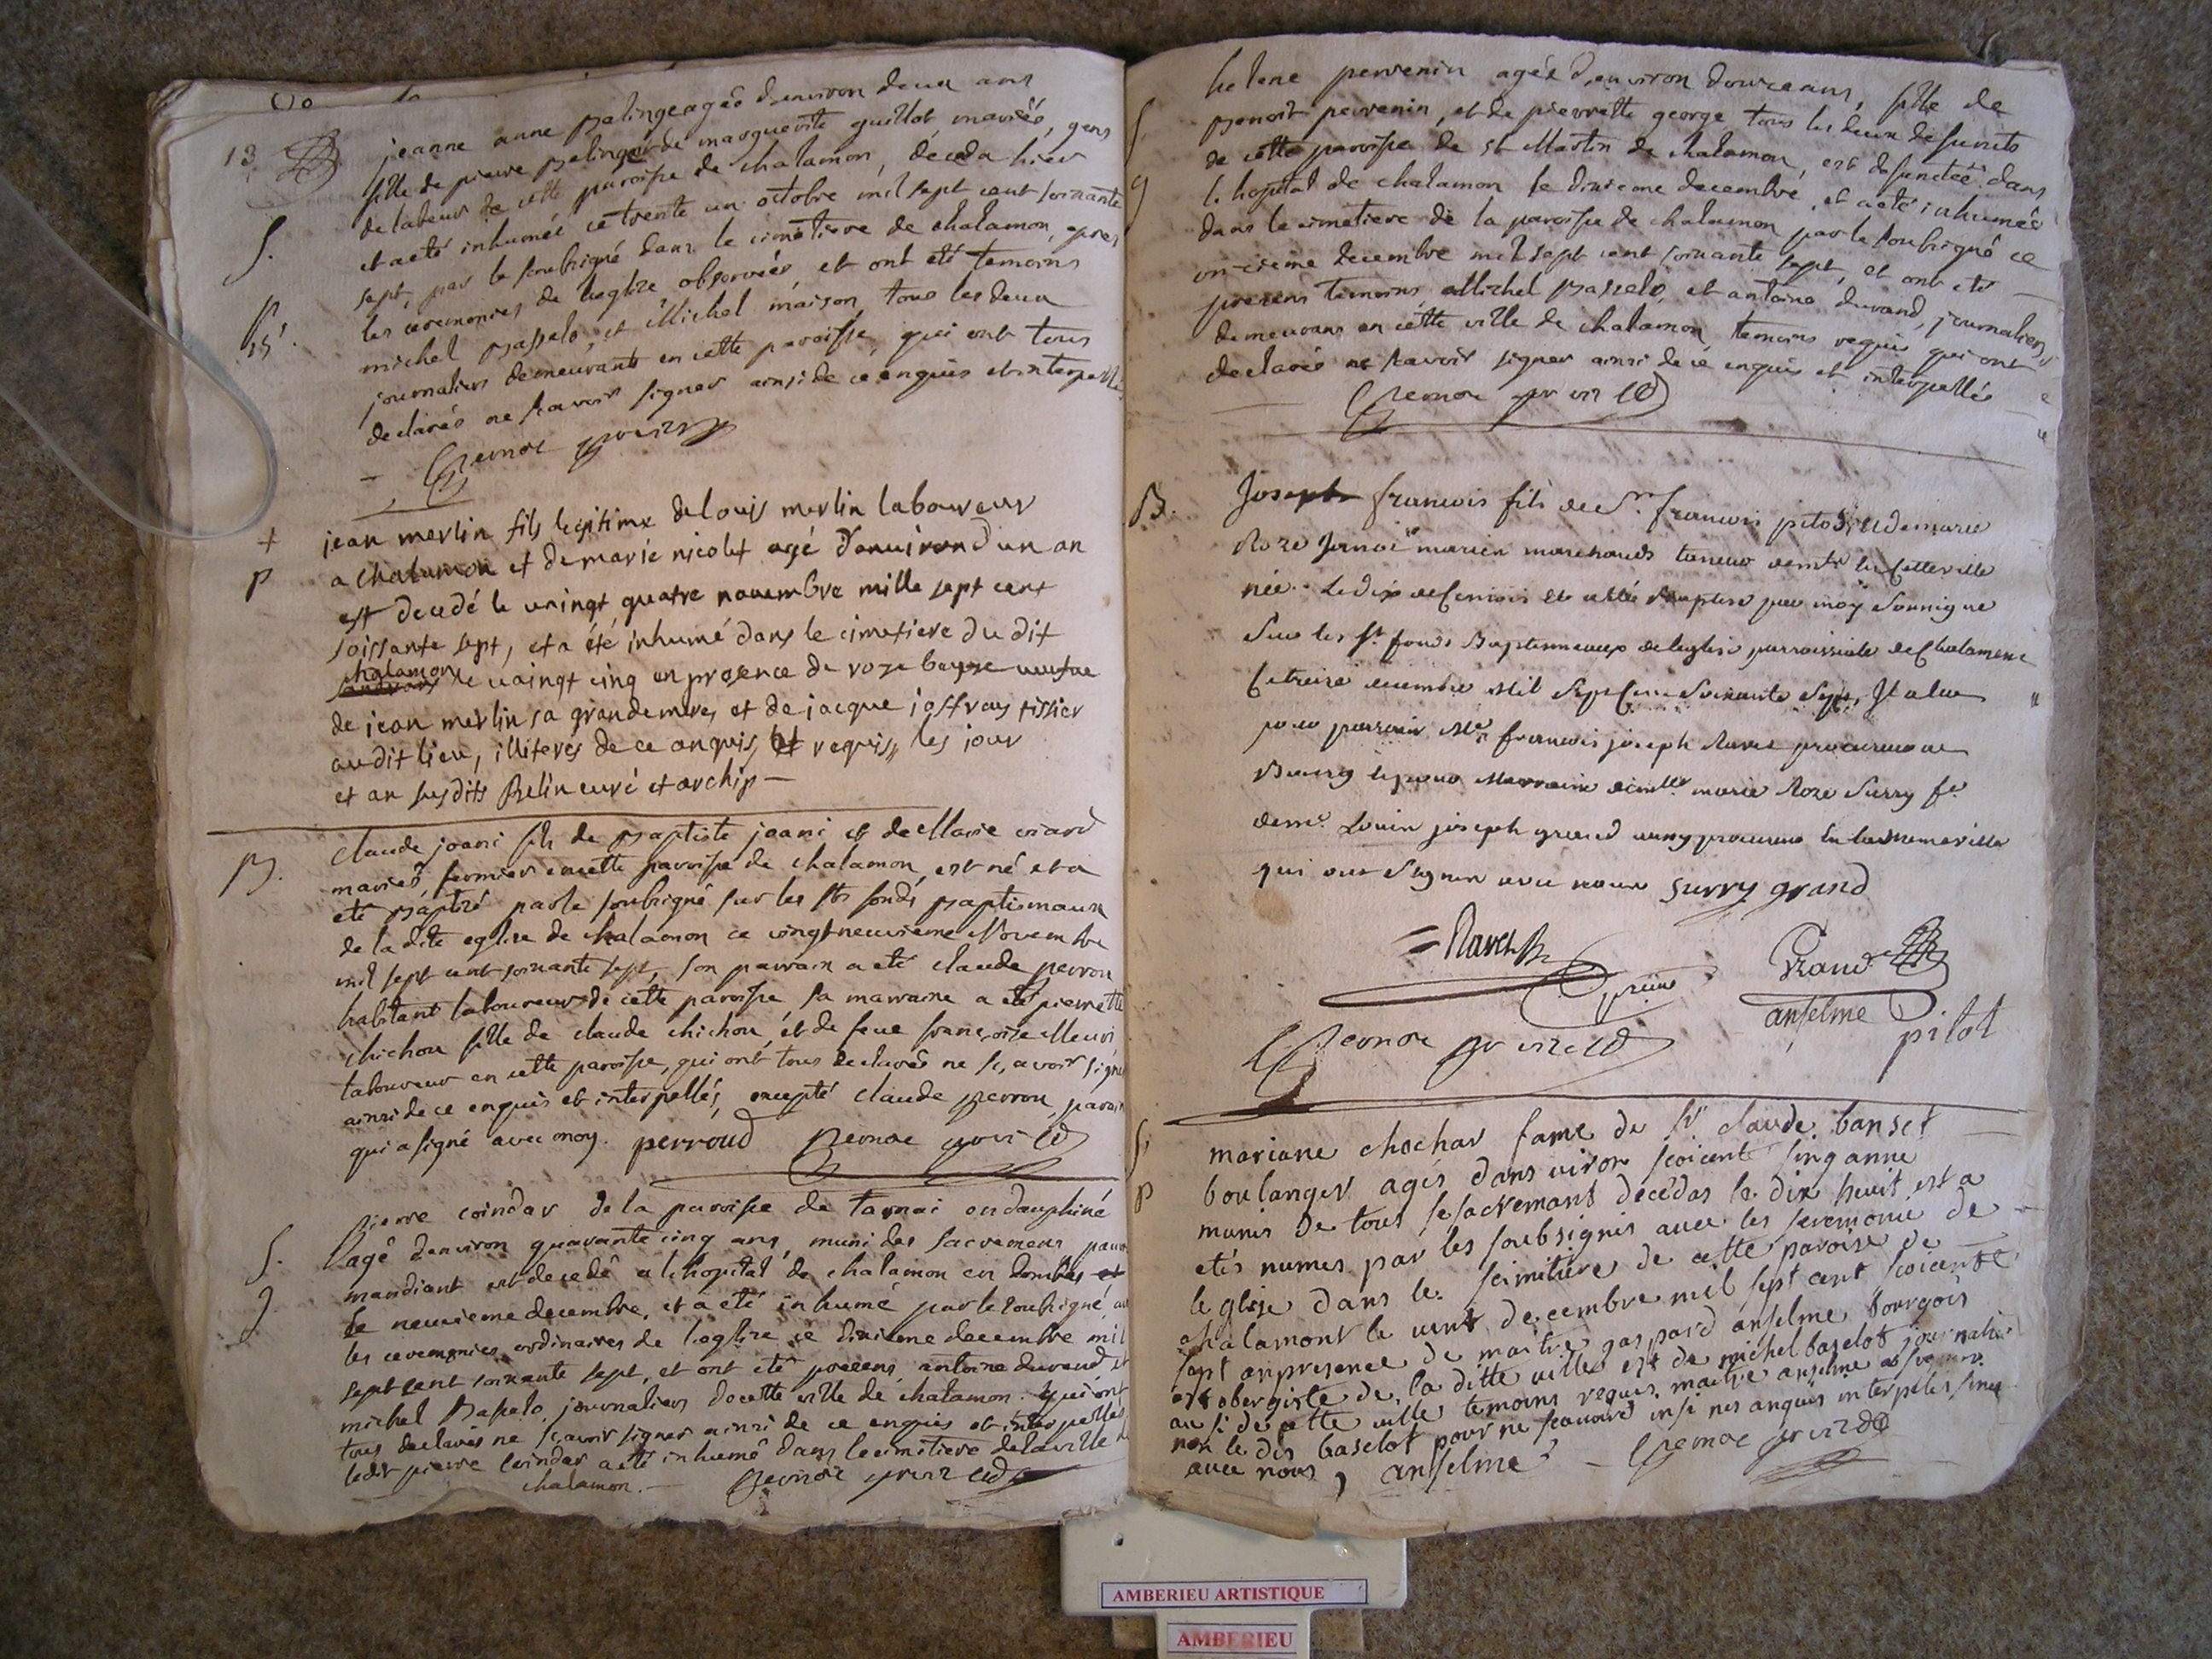 13 jeanne anne agée d'environ deux ans
fille de pierre et de marguerite guillot, mariés, gens
de labeur de cette paroisse de chalamon, déceda hier
S. et a eté inhumée ce trente un octobre mil sept cent soixante
sept, par le soubsigné dans le cimetierre de chalamon, apres
les ceremonies de leglise observées, et ont été temoins
michel et Michel maison, tous les deux
journaliers demeurants en cette paroisse, qui ont tous
declarés ne scavoir signer ainsi de ce enquis et interpellés

+ jean merlin fils legitime de louis merlin laboureur
p a chalamon et de marie nicolet agé d'anuiron d'un an
est decedé le uaingt quatre nouembre mille sept cent
soissante sept, et a été inhumé dans le cimetiere du dit
chalamon le uaingt cinq en presence de roze
de jean merlin sa grande mere, et de jacque tissier
audit lieu, illiterés de ce anquis, et requis, les jour
et an susdits curé et archip
B. claude joani fils de Baptiste joani et de Marie
mariés, fermier en cette paroisse de chalamon, est né et a
eté baptisé par le soubsigné sur les sts fonds baptismaux
de la dite eglise de chalamon ce vingt neuvieme Novembre
mil sept cent soixante sept, son parrain a eté claude perrou
habitant laboureur de cette paroisse sa marraine a eté pierrette
chichou fille de claude chichou, et de feue francoise
laboureur en cette paroisse, qui ont tous declarés ne sçavoir signé
ainsi de ce enquis et interpellés, excepté claude perrou, parain
qui a signé avec moy. perroud
S. Pierre coindar de la paroisse de en dauphiné
agé d'environ quarante cinq ans, muni des sacremens, pauvre
mandiant est decedé a lhopital de chalamon en Dombes
le neuvieme decembre, et a eté inhumé par le soubsigné, avec
les ceremonies ordinaires de leglise ce dixieme decembre mil
sept cent soixante sept, et ont eté presens antoine durand, et
michel journaliers de cette ville de chalamon qui ont
tous declarés ne sçavoir signer ainsi de ce enquis et interpellés
ledit pierre coindar a eté inhumé dans le cimetiere de la ville de
chalamon.
helene perrenin agée d'environ douze ans, fille de
S benoit perrenin, et de pierrette george tous les deux defunts
de cette paroisse de st Martin de chalamon, est defunctée dans
l'hopital de chalamon le dixieme decembre, et a eté inhumée
dans le cimetiere de la paroisse de chalamon par le soubsigné ce
onzieme decembre mil sept cent soixante sept, et ont eté
presens temoins Michel et antoine durand, journaliers
demeurans en cette ville de chalamon, temoins requis qui ont
declarés ne scavoir signer ainsi de ce enquis et interpellés

B. Joseph francois fils de Sr. francois pitot, et de marie
Roze mariés marchands taneur en cette ville
née Le dix de Ce mois et a été Baptisé par moy Sousigné
Sur les St. fonds Baptismaux de leglise parroissiale de Chalamont
Ce treize decembre Mil Sept Cent Soixante Sept, Il a eu
pour parrain Mr. francois joseph Ravet procureur au
Bourg et pour Marraine marie Roze Surry fe.
de mr. Louis joseph grand
qui ont Signer avec nous surry grand
Ravet
Grand
anselme
pitot

S mariane chochar fame de sr claude banset
p boulanger agés dans uiron scoicent sing anne
munis de tous se sacremant decédas le dix heuit est a
etés numes par les soubsignis auec les seremonie de
leglise dans le scimitiere de cette paroise de
chalamont le uint decembre mil sept cent scoicente
sept anpresence de maitre gaspard anselme bourgois
est obergiste de la ditte uille est de michel baselot journalier
au si de cette uille temoins requis maitre anselme
non le dis baselot pour ne scauoire insi nes anquis interpeles
auec nous, anselme
AMBERIEU ARTISTIQUE
AMBERIEU